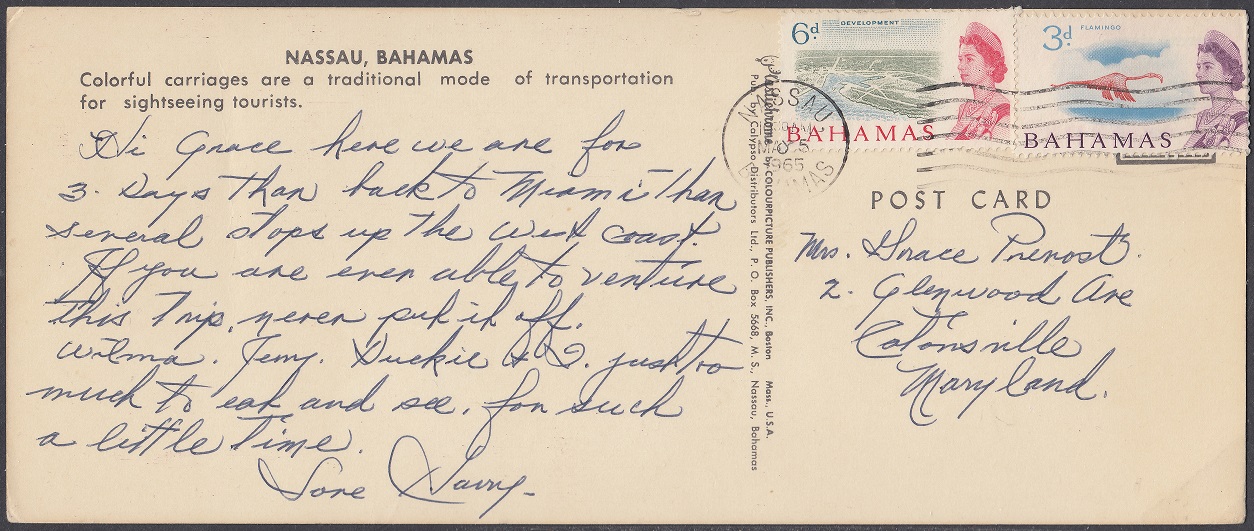 NASSAU, BAHAMAS
Colorful carriages are a traditional mode of transportation
for sightseeing tourists.
Hi Grace here we are for
3. Days than back to Miami than
several stops up the west coast.
If you are ever able to venture
this Trip, never put it off.
Wilma. Jerry. Duckie & I. just too
much to eat and see, for such
a little Time.
Love
Plastichrome by COLOURPICTURE PUBLISHERS, INC., Boston Mass., U.S.A.
Pub. by Calypso Distributors Ltd., P. O. Box 5668, M. S., Nassau, Bahamas
6d
DEVELOPMENT
BAHAMAS
3d
FLAMINGO
BAHAMAS
NASSAU
1965
BAHAMAS
POST CARD
Mrs. Grace Prevost.
2. Glenwood Ave
Catonsville
Maryland.